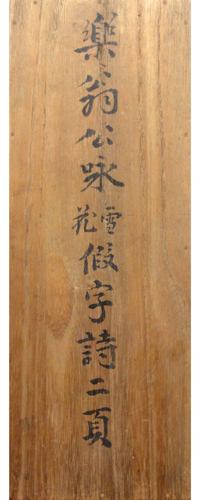 樂翁公咏雪花假字詩二頁